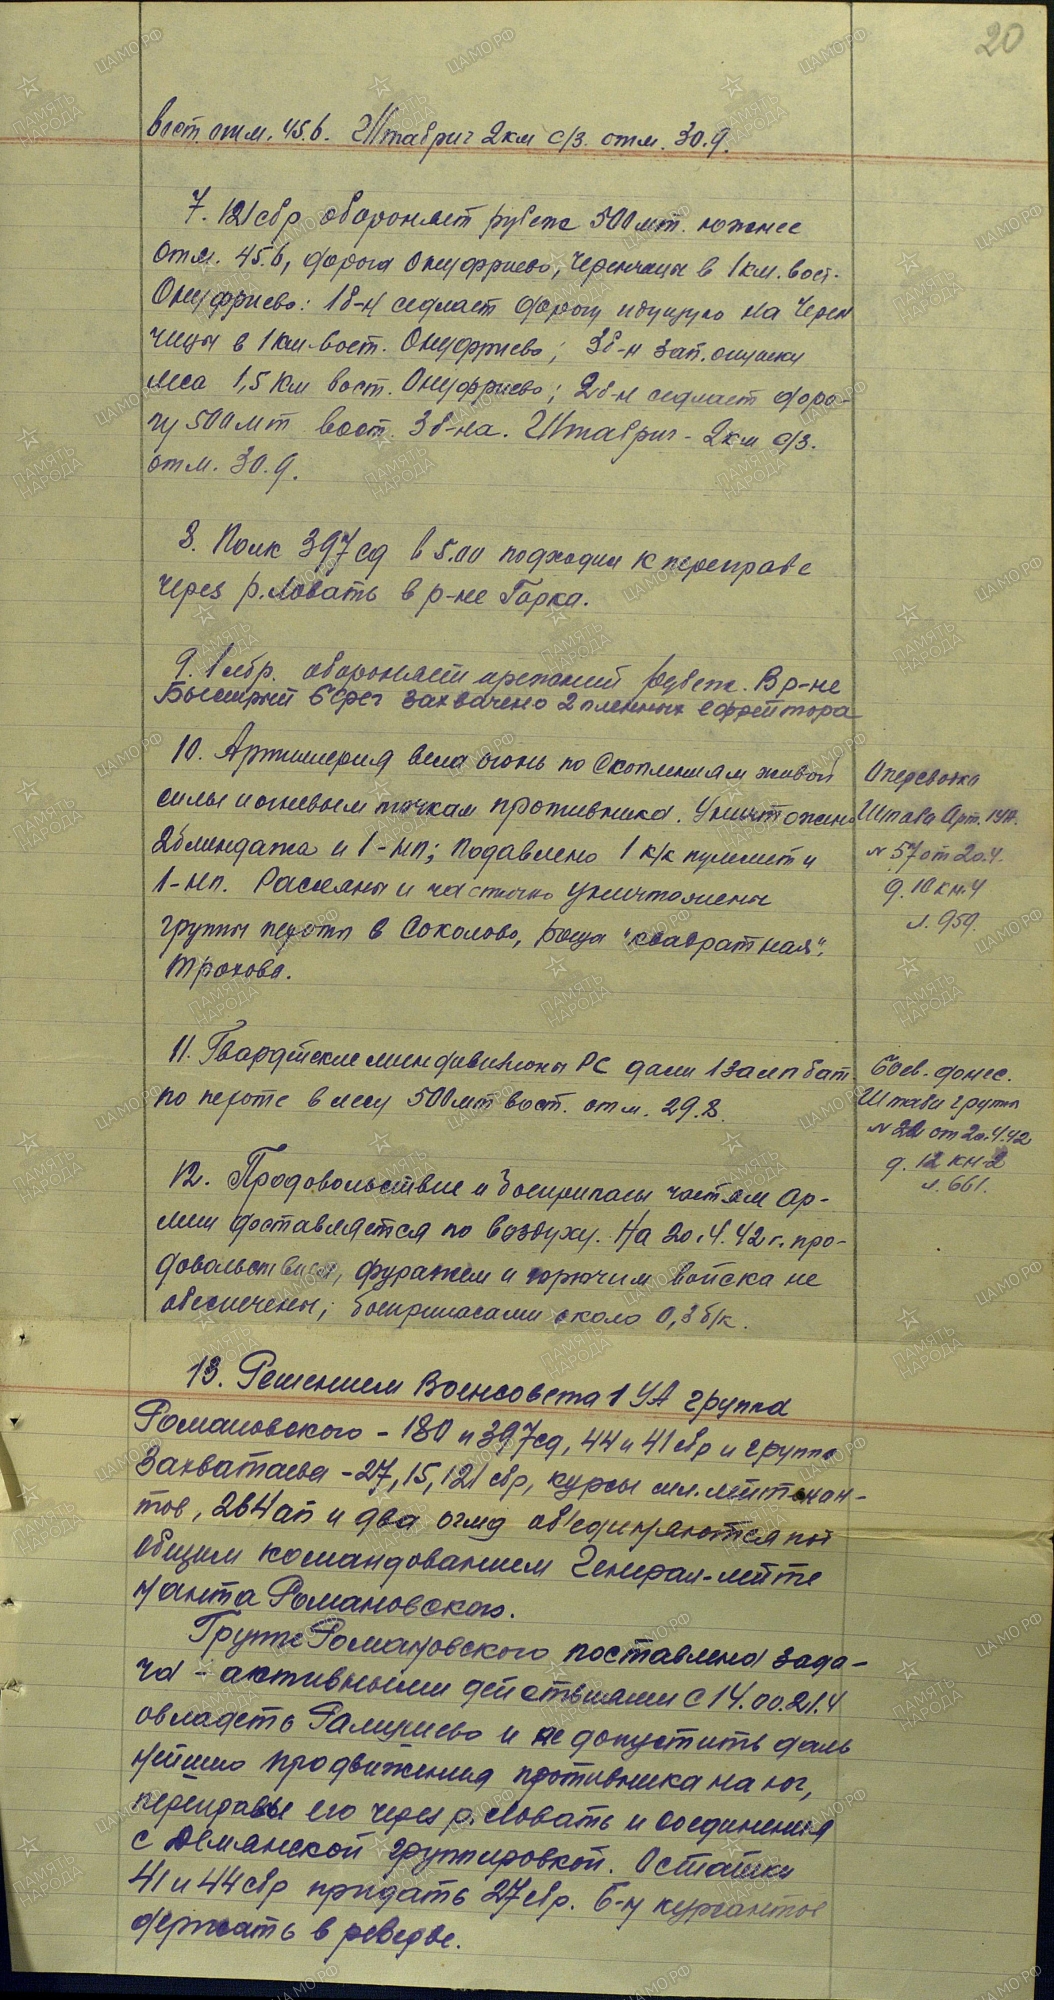 20
вост. отм. 45.6. Штабриг 2 км с/з. отм. 30.9.
7. 121 сбр обороняет рубеж 500 мт. южнее
отм. 45.6, дорога Онуфриево, Черенчицы в 1 км. вост.
Онуфриево: 1 б-н седлает дорогу идущую на Черен
чицы в 1 км вост. Онуфриево; 3 б-н зап. опушку
леса 1,5 км вост. Онуфриево; 2 б-н седлает доро-
гу 500 мт вост. 3 б-на. Штабриг - 2 км с/з.
отм. 30.9.
8. Полк 397 сд в 5.00 подходил к переправе
через р. Ловать в р-не Горка.
9. 1 лбр. обороняет прежний рубеж. В р-не
Быстрый Берег захвачено 2 пленных ефрейтора
10. Артиллерия вела огонь по скоплениям живой
силы и огневым точкам противника. Уничтожен
2 блиндажа и 1-нп; подавлено 1 к/к пулемет и
1-нп. Рассеяны и частично уничтожены
группы пехоты в Соколово, роща "квадратная",
Трохово.
Оперсводка
Штаба Арт. 1УА.
№ 57 от 20.4.
д. 10 кн. 4
л. 959.
11. Гвардейские миндивизионы РС дали 1 залп бат.
по пехоте в лесу 500 мт вост. отм. 29.8.
Боев. донес.
Штаба группы
№ 22 от 20.4.42
д. 12 кн-2
л. 661.
12. Продовольствие и боеприпасы частям ар-
мии доставляется по воздуху. На 20.4.42 г. про-
довольствием, фуражем и горючим войска не
обеспечены; боеприпасами около 0,3 б/к.
13. Решением Военсовета 1 УА группа
Романовского - 180 и 397 сд, 44 и 41 сбр и группа
Захватаева - 27, 15, 121 сбр, курсы мл. лейтенан-
тов, 264 ап и два огмд объединяются под
общим командованием Генерал-лейте
нанта Романовского.
Группе Романовского поставлена зада-
ча - активными действиями с 14.00 21.4
овладеть Рамушево и не допустить даль
нейшего продвижения противника на юг,
переправы его через р. Ловать и соединения
с Демянской группировкой. Остатки
41 и 44 сбр придать 27 сбр. Б-н курсантов
держать в резерве.